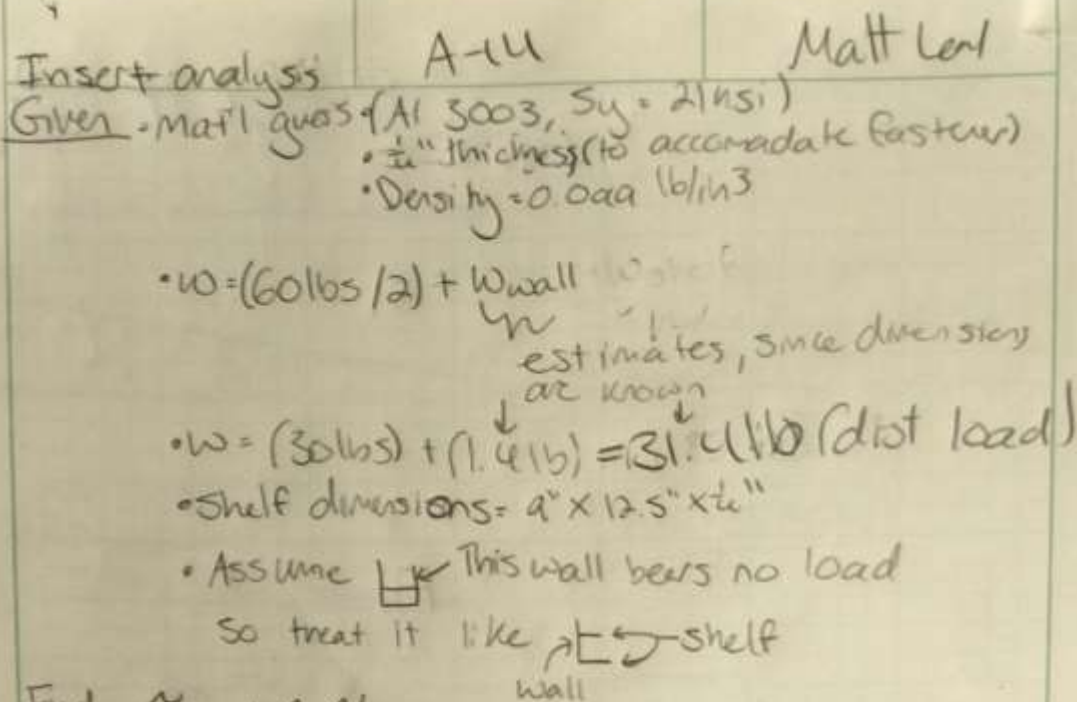 Insert analysis
A-14
Matt
Given • Mat'l guess (Al 3003, Sy = 21ksi)
• 1/4" thickness (to accomadate fastener)
• Density = 0.099 lb/in3
• W = (60lbs /2) + Wwall
estimates, since dimensions
are known
• W = (30lbs) + (1.4lb) = 31.4lb (dist load)
• Shelf dimensions = 9" x 12.5" x 1/4"
• Assume This wall bears no load
So treat it like shelf
wall